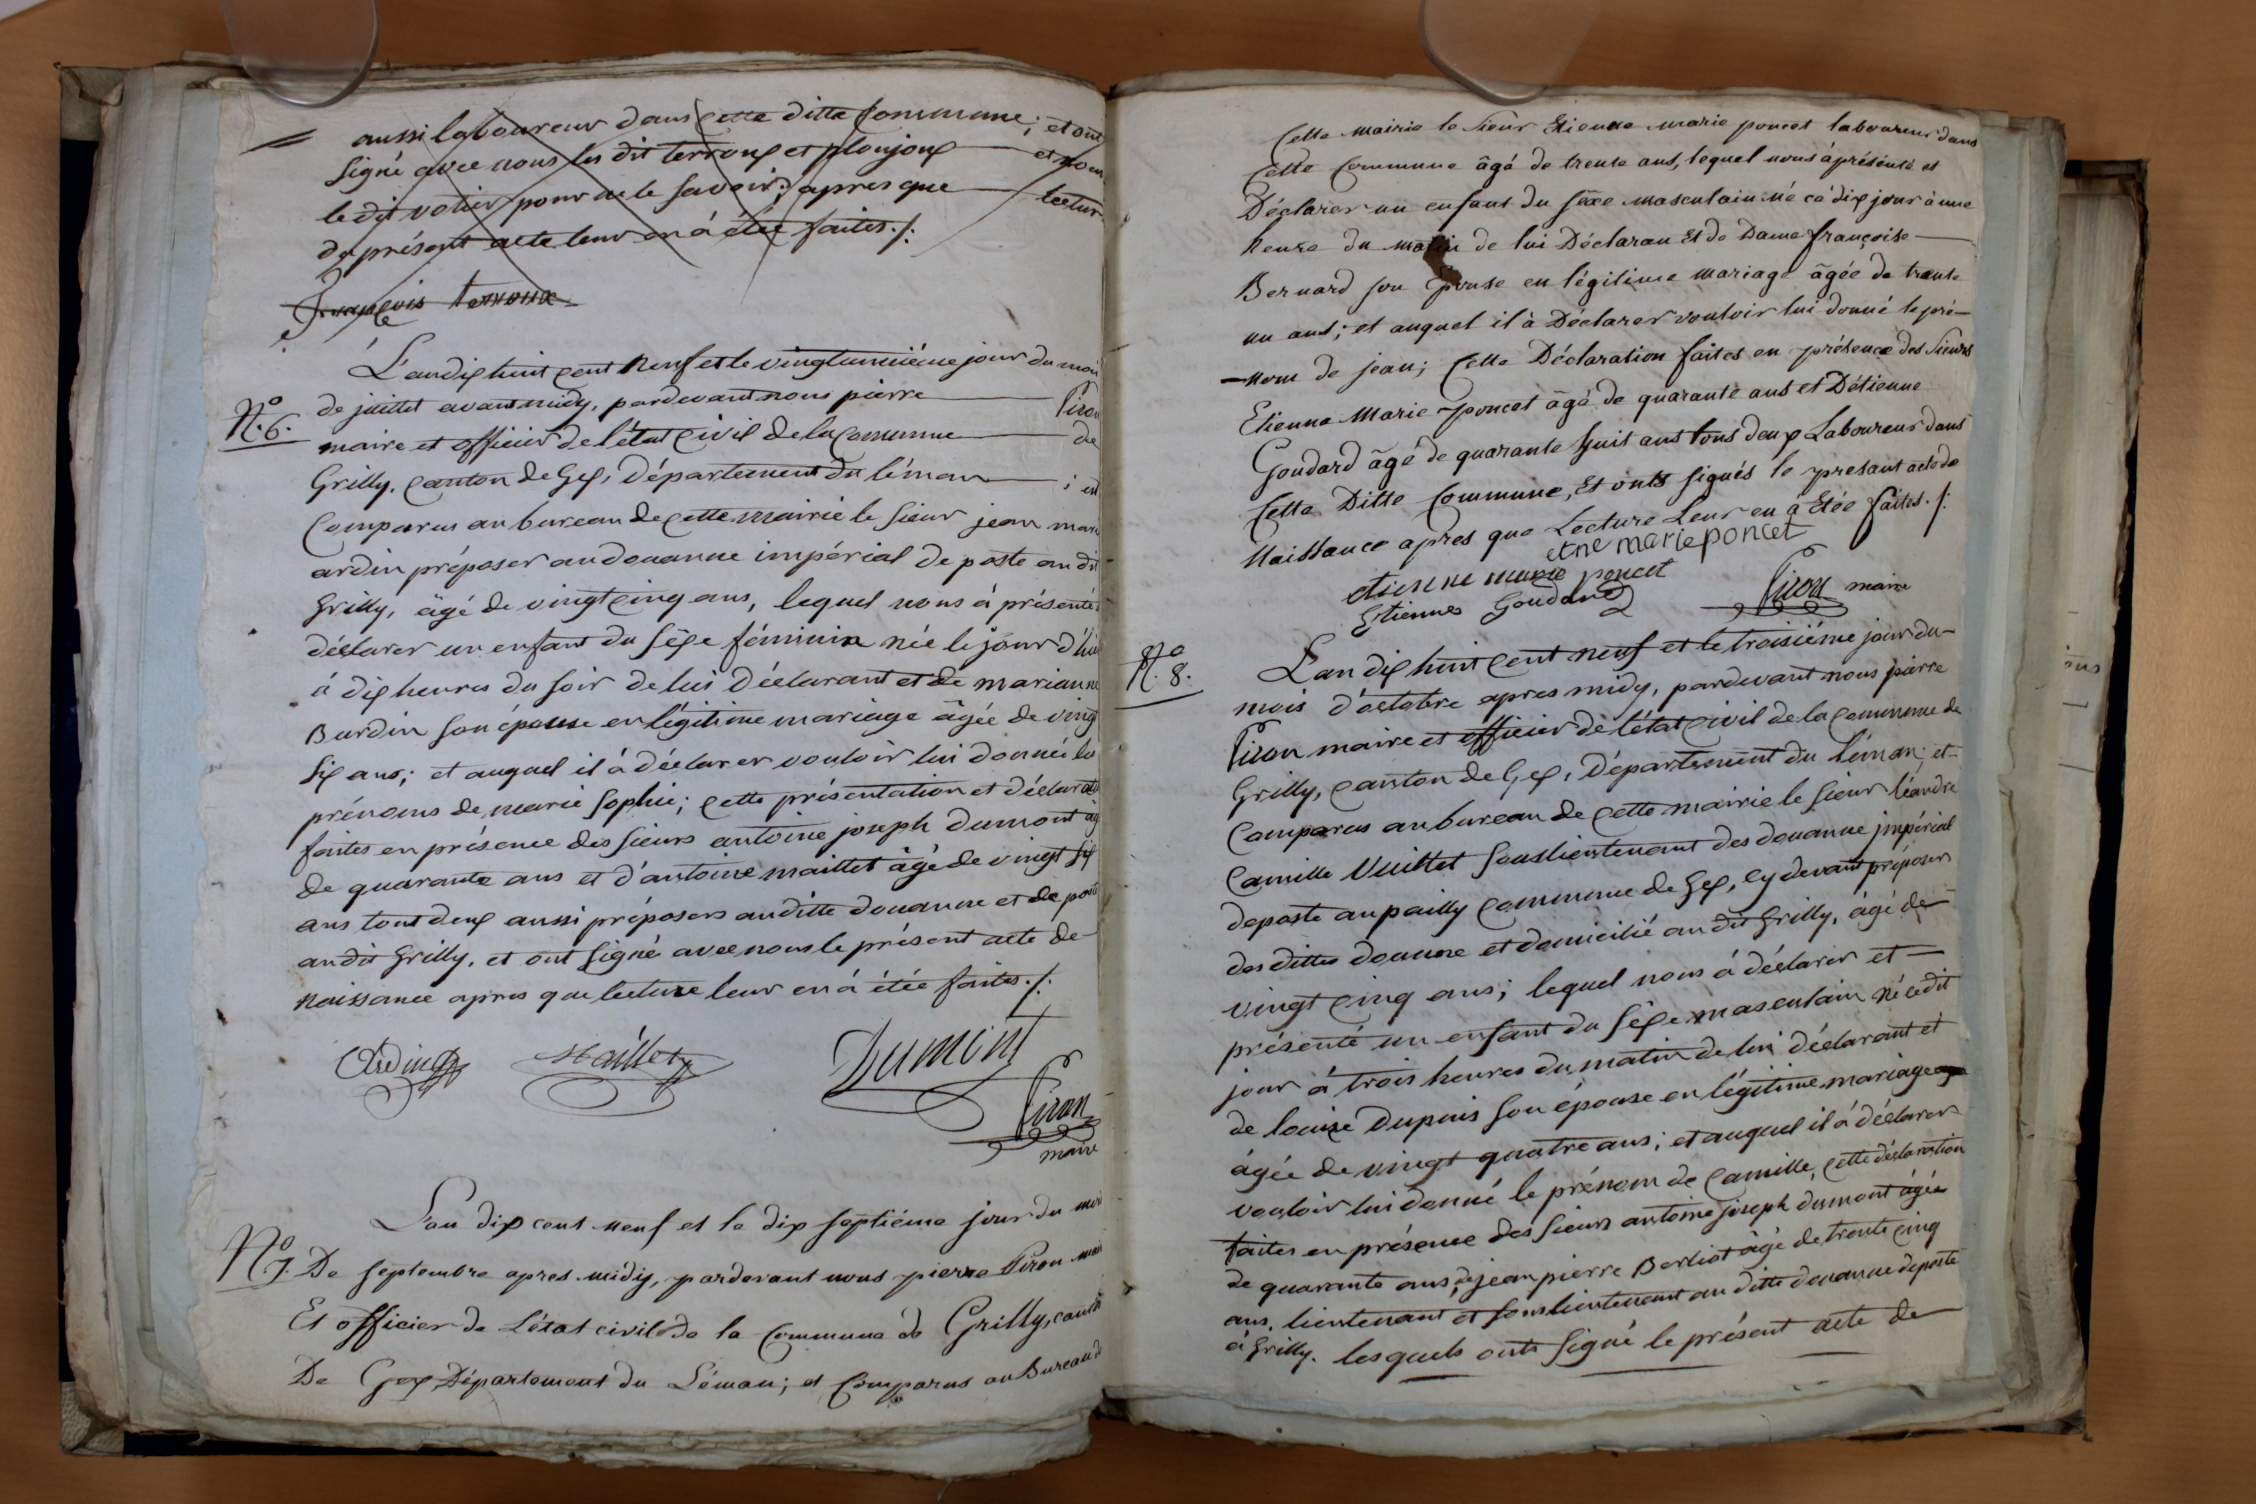 aussi laboureur dans cette ditte Commune; et ont
signé avec nous les dit terroux et plonjoux et non
le dit votier pour ne le savoir; apres que lectur
du présent acte leur en à étée faites ./.
François terroux
L'an dix huit cent Neuf et le vingtunnième jour du moi
N.o 6. de juillet avant midy, pardevant nous pierre Piron
maire et officier de l'état Civil de la Commune de
Grilly, canton de Gex, Département du léman ; et
Comparus au bureau de cette mairie le sieur jean marc
ardin préposer au douanne impérial de poste au dit
Grilly, âgé de vingt cinq ans, lequel nous à présenté
déclarer un enfant du séxe féminin née le jour d'hie
à dix heures du soir de lui Déclarant et de marianne
Burdin son épouse en légitime mariage âgée de vingt
six ans; et auquel il à déclarer vouloir lui donnée les
prénoms de marie sophie; cette présentation et déclarati
faites en présence des sieurs antoine joseph dumont ag
de quarante ans et d'antoine maillet âgé de vingt six
ans tout deux aussi préposers au ditte douanne et de post
au dit Grilly, et ont signé avec nous le présent acte de
naissance apres que lecture leur en à étée faites ./.
Ardin Maillet Dumont
Piron
maire
L'an dix cent neuf et le dix septième jour du moi
N.o 7. De septembre apres midy, pardevant nous pierre Piron mai
Et officier de L'état civile de la Commune de Grilly, canton
De Gex Département du Léman; et Comparus au Bureau d
Cette mairie le sieur Etienne marie poncet laboureur dans
Cette Commune âgé de trente ans, lequel nous à présenté et
Déclarer un enfant du sêxe masculain né cé dix jour à une
heure du matin de lui Déclaran Et de Dame françoise
Bernard son Epouse en légitime mariage âgée de trente
un ans; et auquel il à Déclarer vouloir lui donné le pré-
-nom de jean; Cette Déclaration faites en présence des sieurs
Etienne Marie poncet âgé de quarante ans et Détienne
Goudard âgé de quarante huit ans tous deux Laboureur dans
Cette Ditte Commune, Et onts signés le presant acte de
Naissance apres que Lecture Leur en à Etée faites ./.
etne marie poncet
etienne marie poncet
Etienne Goudard Piron maire
N.o 8. L'an dix huit cent neuf et le troisiéme jour du
mois d'octobre apres midy, pardevant nous pierre
Piron maire et officier de l'état civil de la Commune de
Grilly, canton de Gex, Département du léman; et
Comparus au bureau de cette mairie le sieur léandre
Camille Vuillet souslientenant des douanne impérial
de poste au pailly Commune de Gex, cy devant préposer
des dittes douanne et domicilié au dit Grilly, âgé de
vingt cinq ans; lequel nous à déclarer et
présenté un enfant du séxe masculain né cedit
jour à trois heures du matin de lui déclarant et
de louise Dupuis son épouse en légitime mariage
âgée de vingt quatre ans; et auquel il à déclarer
vouloir lui donné le prénom de Camille, cette déclaration
faites en présence des sieurs antoine joseph dumont âgée
de quarante ans, de jean pierre Berliot âgé de trente cinq
ans, lientenant et souslientenant au ditte douanne de poste
à Grilly. lesquels onts signé le présent acte de